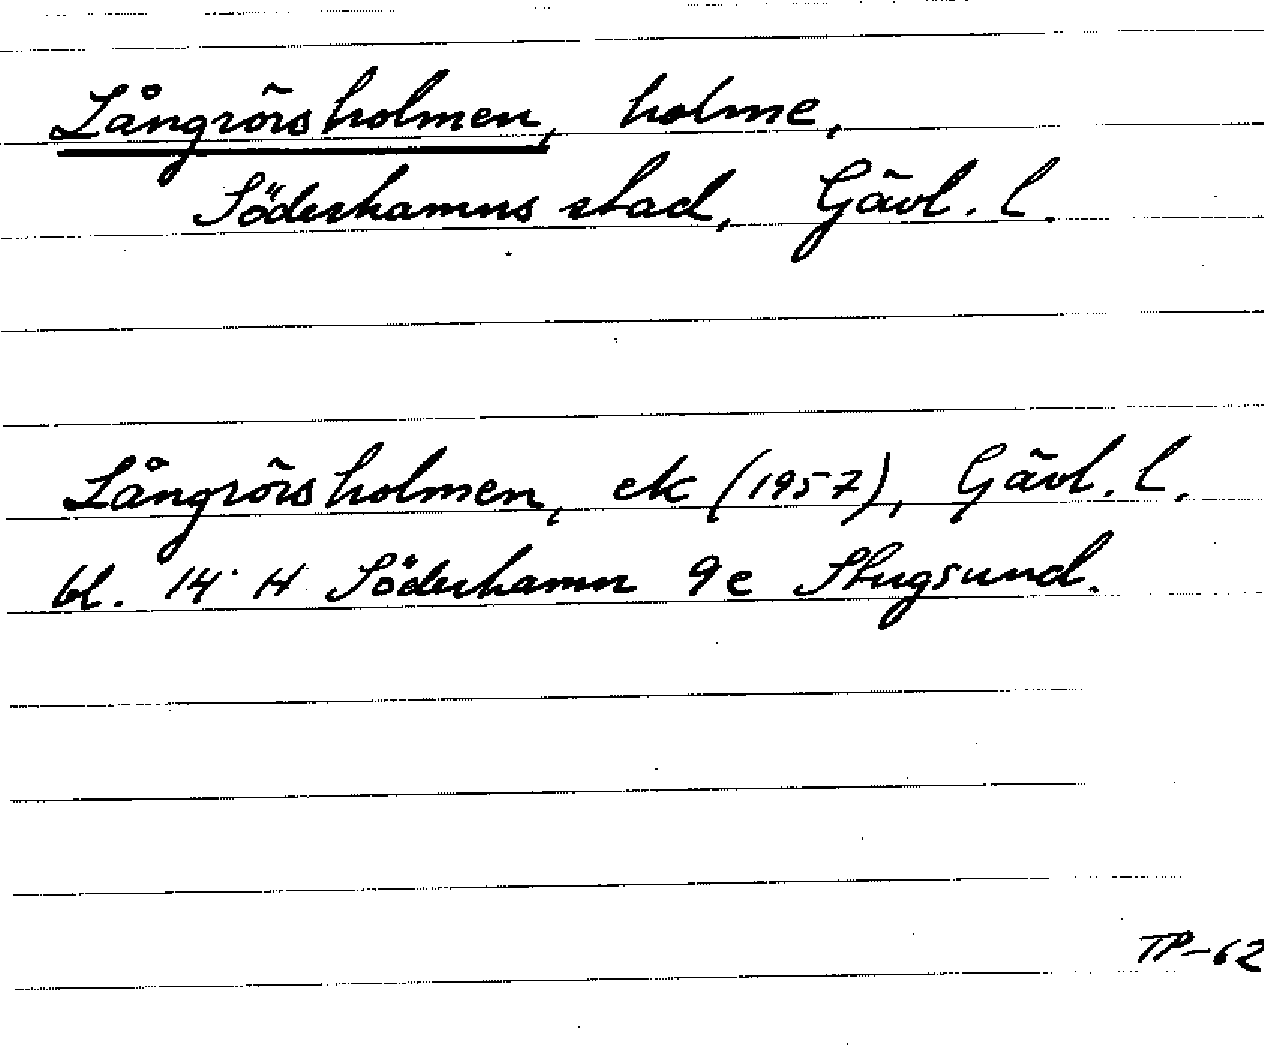 Långrörsholmen, holme,
Söderhamns stad, Gävl. l.
Långrörsholmen, ek (1957), Gävl. l.
bl. 14 H Söderhamn 9 e Stugsund.
TP-62